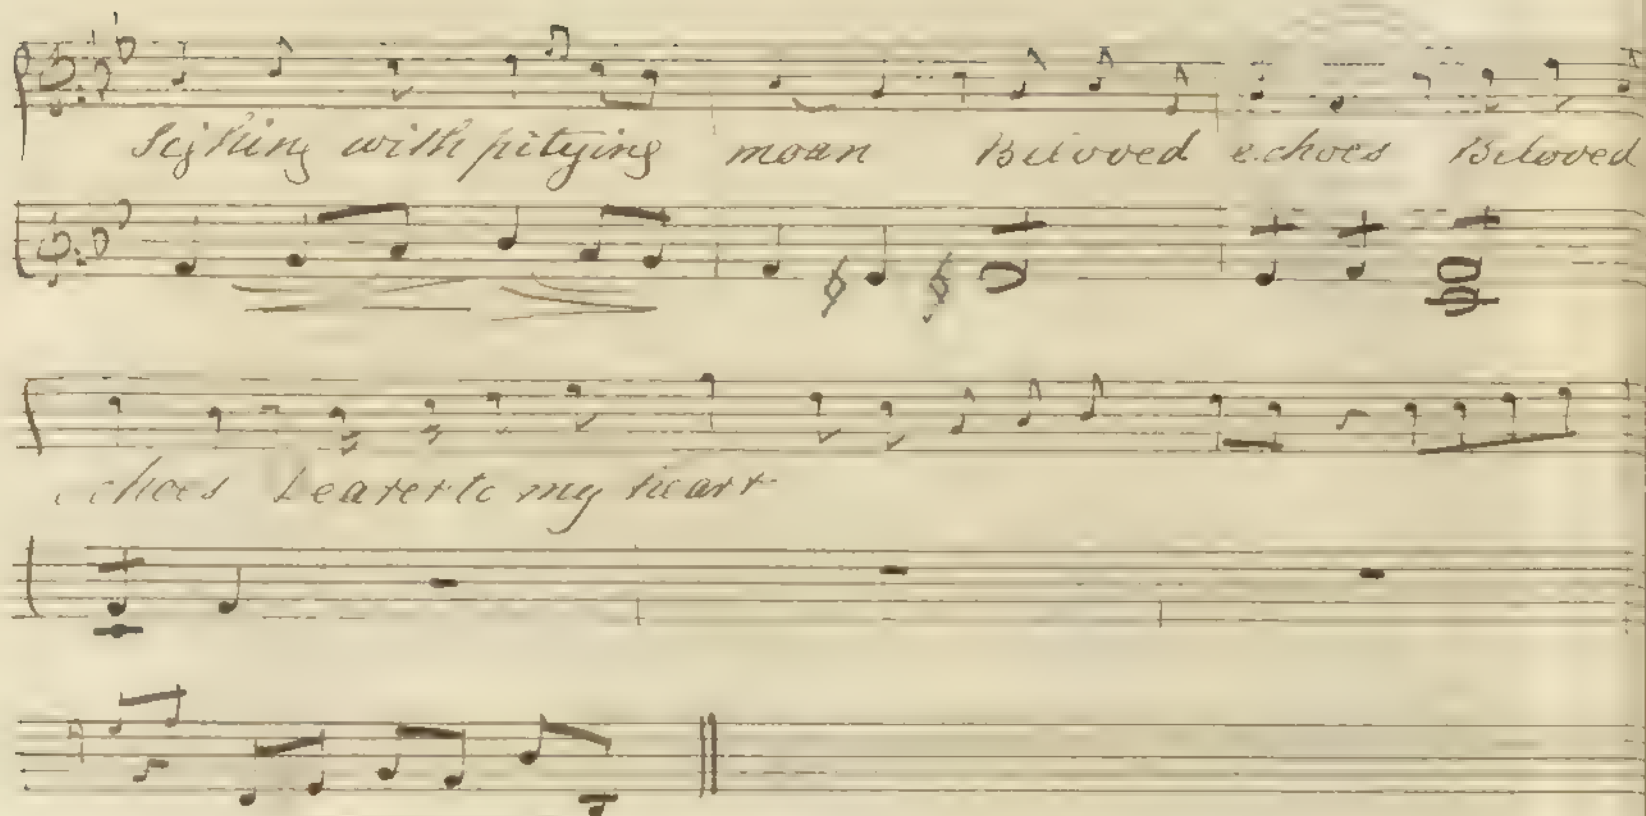 Sighing with pitying moan Beloved echoes Beloved
echoes Dearer to my heart